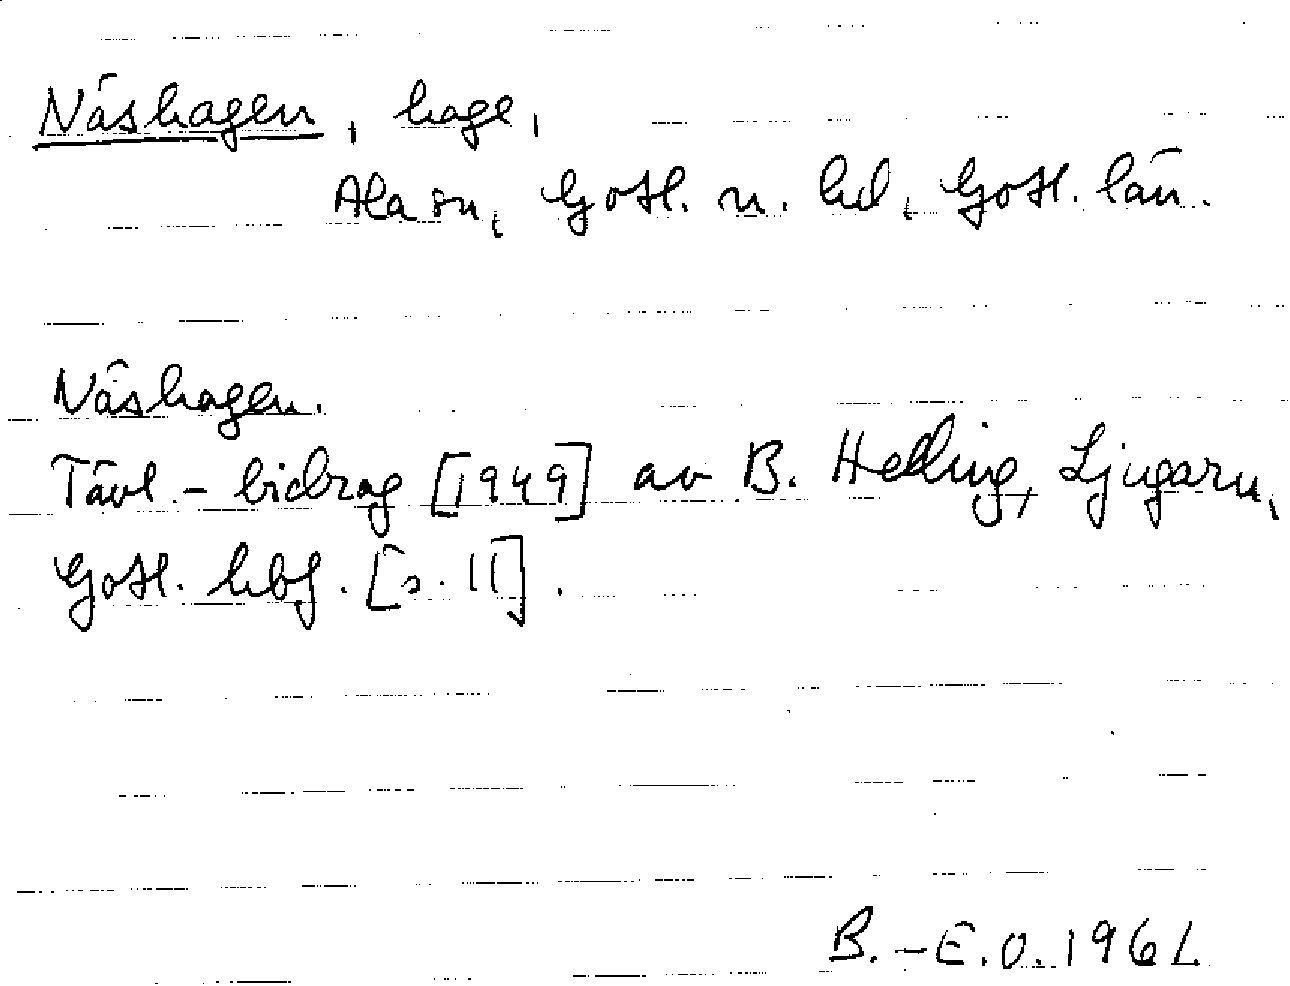 Näshagen, hage,
Ala sn, Gotl. n. hd, Gotl. län.
Näshagen.
Tävl.-bidrag [1949] av B. Helling, Ljugarn,
Gotl. hbf. [s. 11].
B.-E.O. 1961.